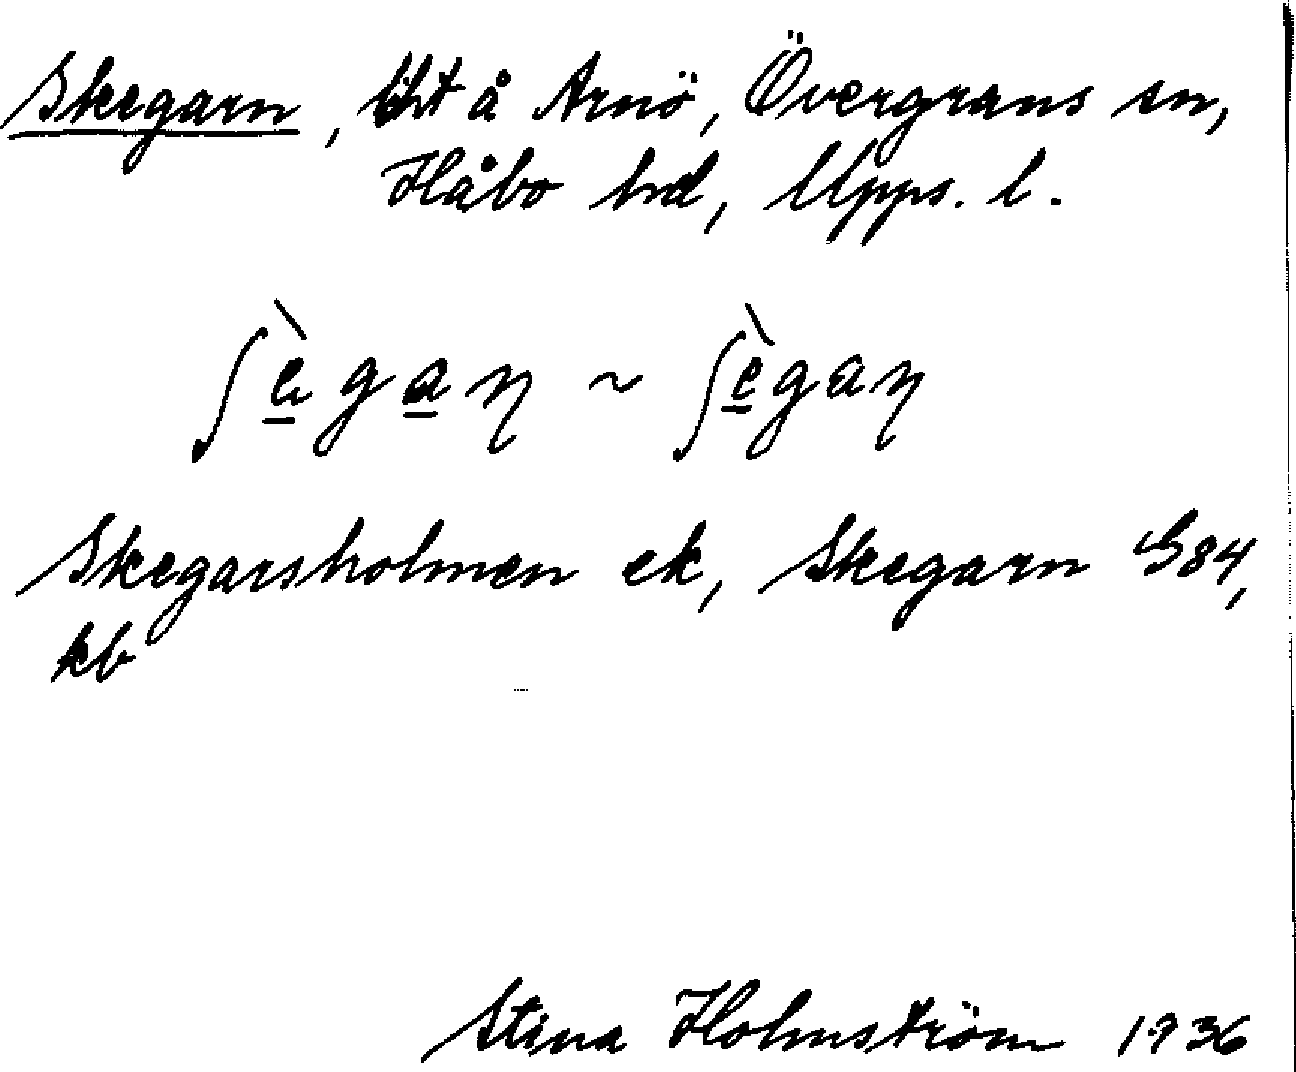 Skegarn, lht å Arnö, Övergrans sn,
Håbo hd, Upps. l.
ʃè̱ga̱ŋ ~ ʃè̱gaŋ
Skegarsholmen ek, Skegarn G84,
kb
Stina Holmström 1936